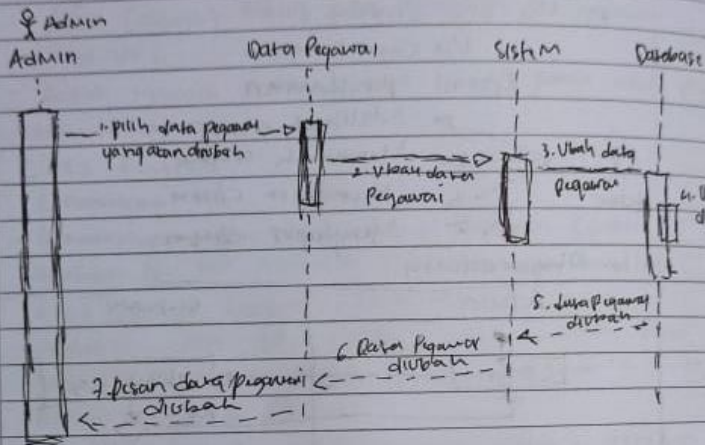 Admin
Admin
Data Pegawai
Sistem
Database
1. pilih data pegawai
yang akan diubah
2. Ubah data
Pegawai
3. Ubah data
pegawai
4. U
d
5. data pegawai
diubah
6. Data Pegawai
diubah
7. pesan data pegawai
diubah